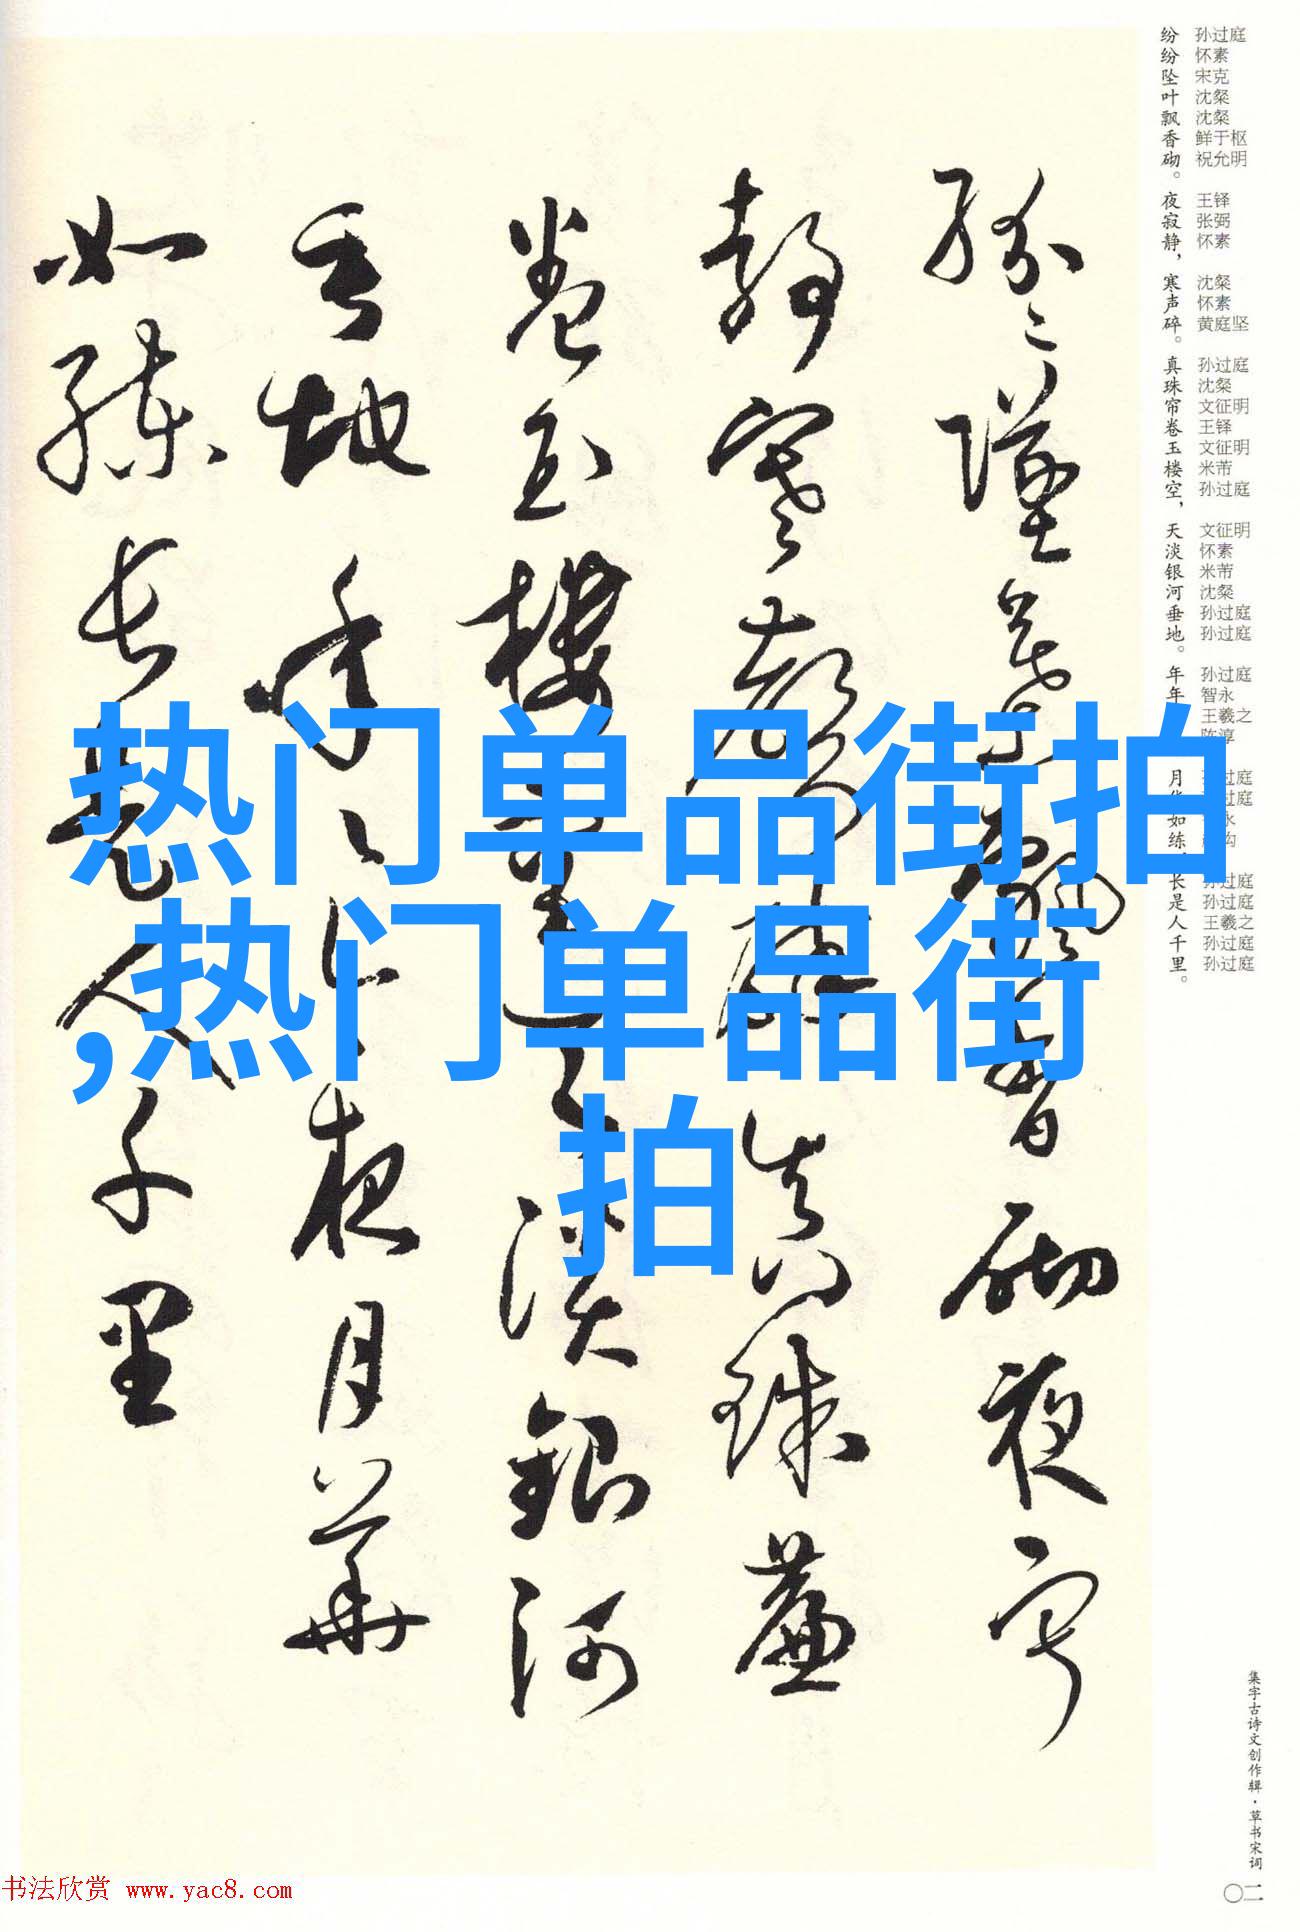 纷纷坠叶飘香砌。夜寂静，寒声碎。真珠帘卷玉楼空，天淡银河垂地。年年
月
如练，长是人千里。
孙过庭
怀素
宋克
沈粲
沈粲
鲜于枢
祝允明
王铎
张弼
怀素
沈粲
怀素
黄庭坚
孙过庭
沈粲
文征明
王铎
文征明
米芾
孙过庭
文征明
怀素
米芾
沈粲
孙过庭
孙过庭
孙过庭
智永
王羲之
陈淳
过庭
过庭
永
孙过庭
孙过庭
王羲之
孙过庭
孙过庭
纷〻坠叶飘香砌夜寂
静寒声碎真珠帘
卷玉楼空天淡银河
垂地年〻今夜月华
如练长是人千里
热门单品街拍
,热门单品街
拍
集字古诗文创作辑·草书宋词
〇二
书法欣赏 www.yac8.com